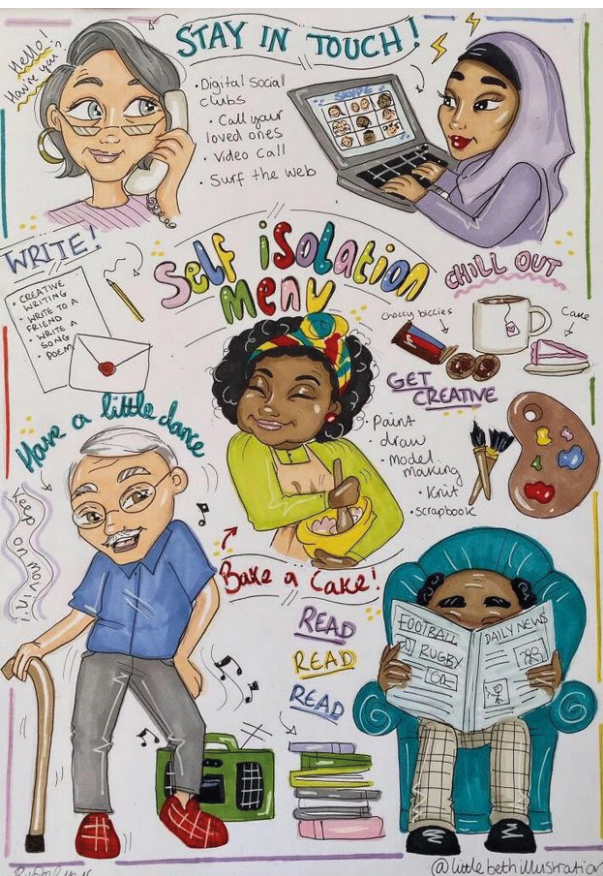 Hello!
How're you?
STAY IN TOUCH!
• Digital Social
clubs
• Call your
loved ones
• video call
• Surf the web
SKYPE
WRITE!
• CREATIVE
WRITING
• WRITE TO A
FRIEND
• WRITE A
SONG
• POEM
Self iSolation
MENU
CHILL OUT
choccy biccies
Cake
GET
CREATIVE
• Paint
• draw
• Model
making
• Knit
• scrapbook
Have a little dance
Keep on movin!
Bake a Cake!
READ
READ
READ
FOOTBALL
RUGBY
DAILY NEWS
@littlebethillustration